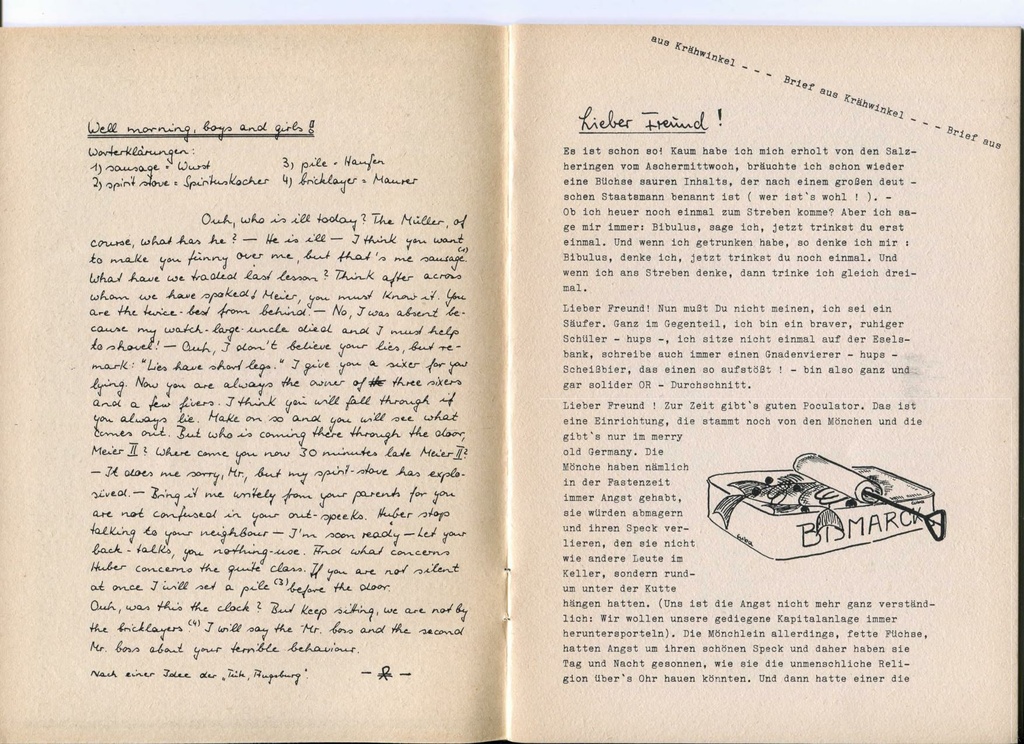 Well morning, boys and girls!
Worterklärungen:
1) sausage = Wurst
3) pile = Haufen
2) spirit stove = Spirituskocher
4) bricklayer = Maurer
Ouh, who is ill today? The Müller, of
course, what has he? — He is ill — I think you want
to make you funny over me, but that's me sausage (1)
What have we traded last lesson? Think after across
whom we have spoked! Meier, you must know it. You
are the twice-best from behind. — No, I was absent be-
cause my watch-large-uncle died and I must help
to shovel! — Ouh, I don't believe your lies, but re-
mark: "Lies have short legs." I give you a sixer for your
lying. Now you are always the owner of three sixers
and a few fivers. I think you will fall through if
you always lie. Make on so and you will see what
comes out. But who is coming there through the door,
Meier II? Where come you now 30 minutes late Meier II?
— It does me sorry, Mr, but my spirit-stove has explo-
sived. — Bring it me writely from your parents for you
are not confused in your out-speeks. Huber stop
talking to your neighbour — I'm soon ready — Let your
back-talks, you nothing-use. And what concerns
Huber concerns the quite class. If you are not silent
at once I will set a pile (3) before the door.
Ouh, was this the clock? But keep sitting, we are not by
the bricklayers (4) I will say the Mr. boss and the second
Mr. boss about your terrible behaviour.
Nach einer Idee der "Tüte, Augsburg".
aus Krähwinkel - - - Brief aus Krähwinkel - - - Brief aus
Lieber Freund!
Es ist schon so! Kaum habe ich mich erholt von den Salz-
heringen vom Aschermittwoch, bräuchte ich schon wieder
eine Büchse sauren Inhalts, der nach einem großen deut -
schen Staatsmann benannt ist ( wer ist's wohl ! ). -
Ob ich heuer noch einmal zum Streben komme? Aber ich sa-
ge mir immer: Bibulus, sage ich, jetzt trinkst du erst
einmal. Und wenn ich getrunken habe, so denke ich mir :
Bibulus, denke ich, jetzt trinkst du noch einmal. Und
wenn ich ans Streben denke, dann trinke ich gleich drei-
mal.
Lieber Freund! Nun mußt Du nicht meinen, ich sei ein
Säufer. Ganz im Gegenteil, ich bin ein braver, ruhiger
Schüler - hups -, ich sitze nicht einmal auf der Esels-
bank, schreibe auch immer einen Gnadenvierer - hups -
Scheißbier, das einen so aufstößt ! - bin also ganz und
gar solider OR - Durchschnitt.
Lieber Freund ! Zur Zeit gibt's guten Poculator. Das ist
eine Einrichtung, die stammt noch von den Mönchen und die
gibt's nur im merry
old Germany. Die
Mönche haben nämlich
in der Fastenzeit
immer Angst gehabt,
sie würden abmagern
und ihren Speck ver-
lieren, den sie nicht
wie andere Leute im
Keller, sondern rund-
um unter der Kutte
BISMARCK
hängen hatten. (Uns ist die Angst nicht mehr ganz verständ-
lich: Wir wollen unsere gediegene Kapitalanlage immer
heruntersporteln). Die Mönchlein allerdings, fette Füchse,
hatten Angst um ihren schönen Speck und daher haben sie
Tag und Nacht gesonnen, wie sie die unmenschliche Reli-
gion über's Ohr hauen könnten. Und dann hatte einer die